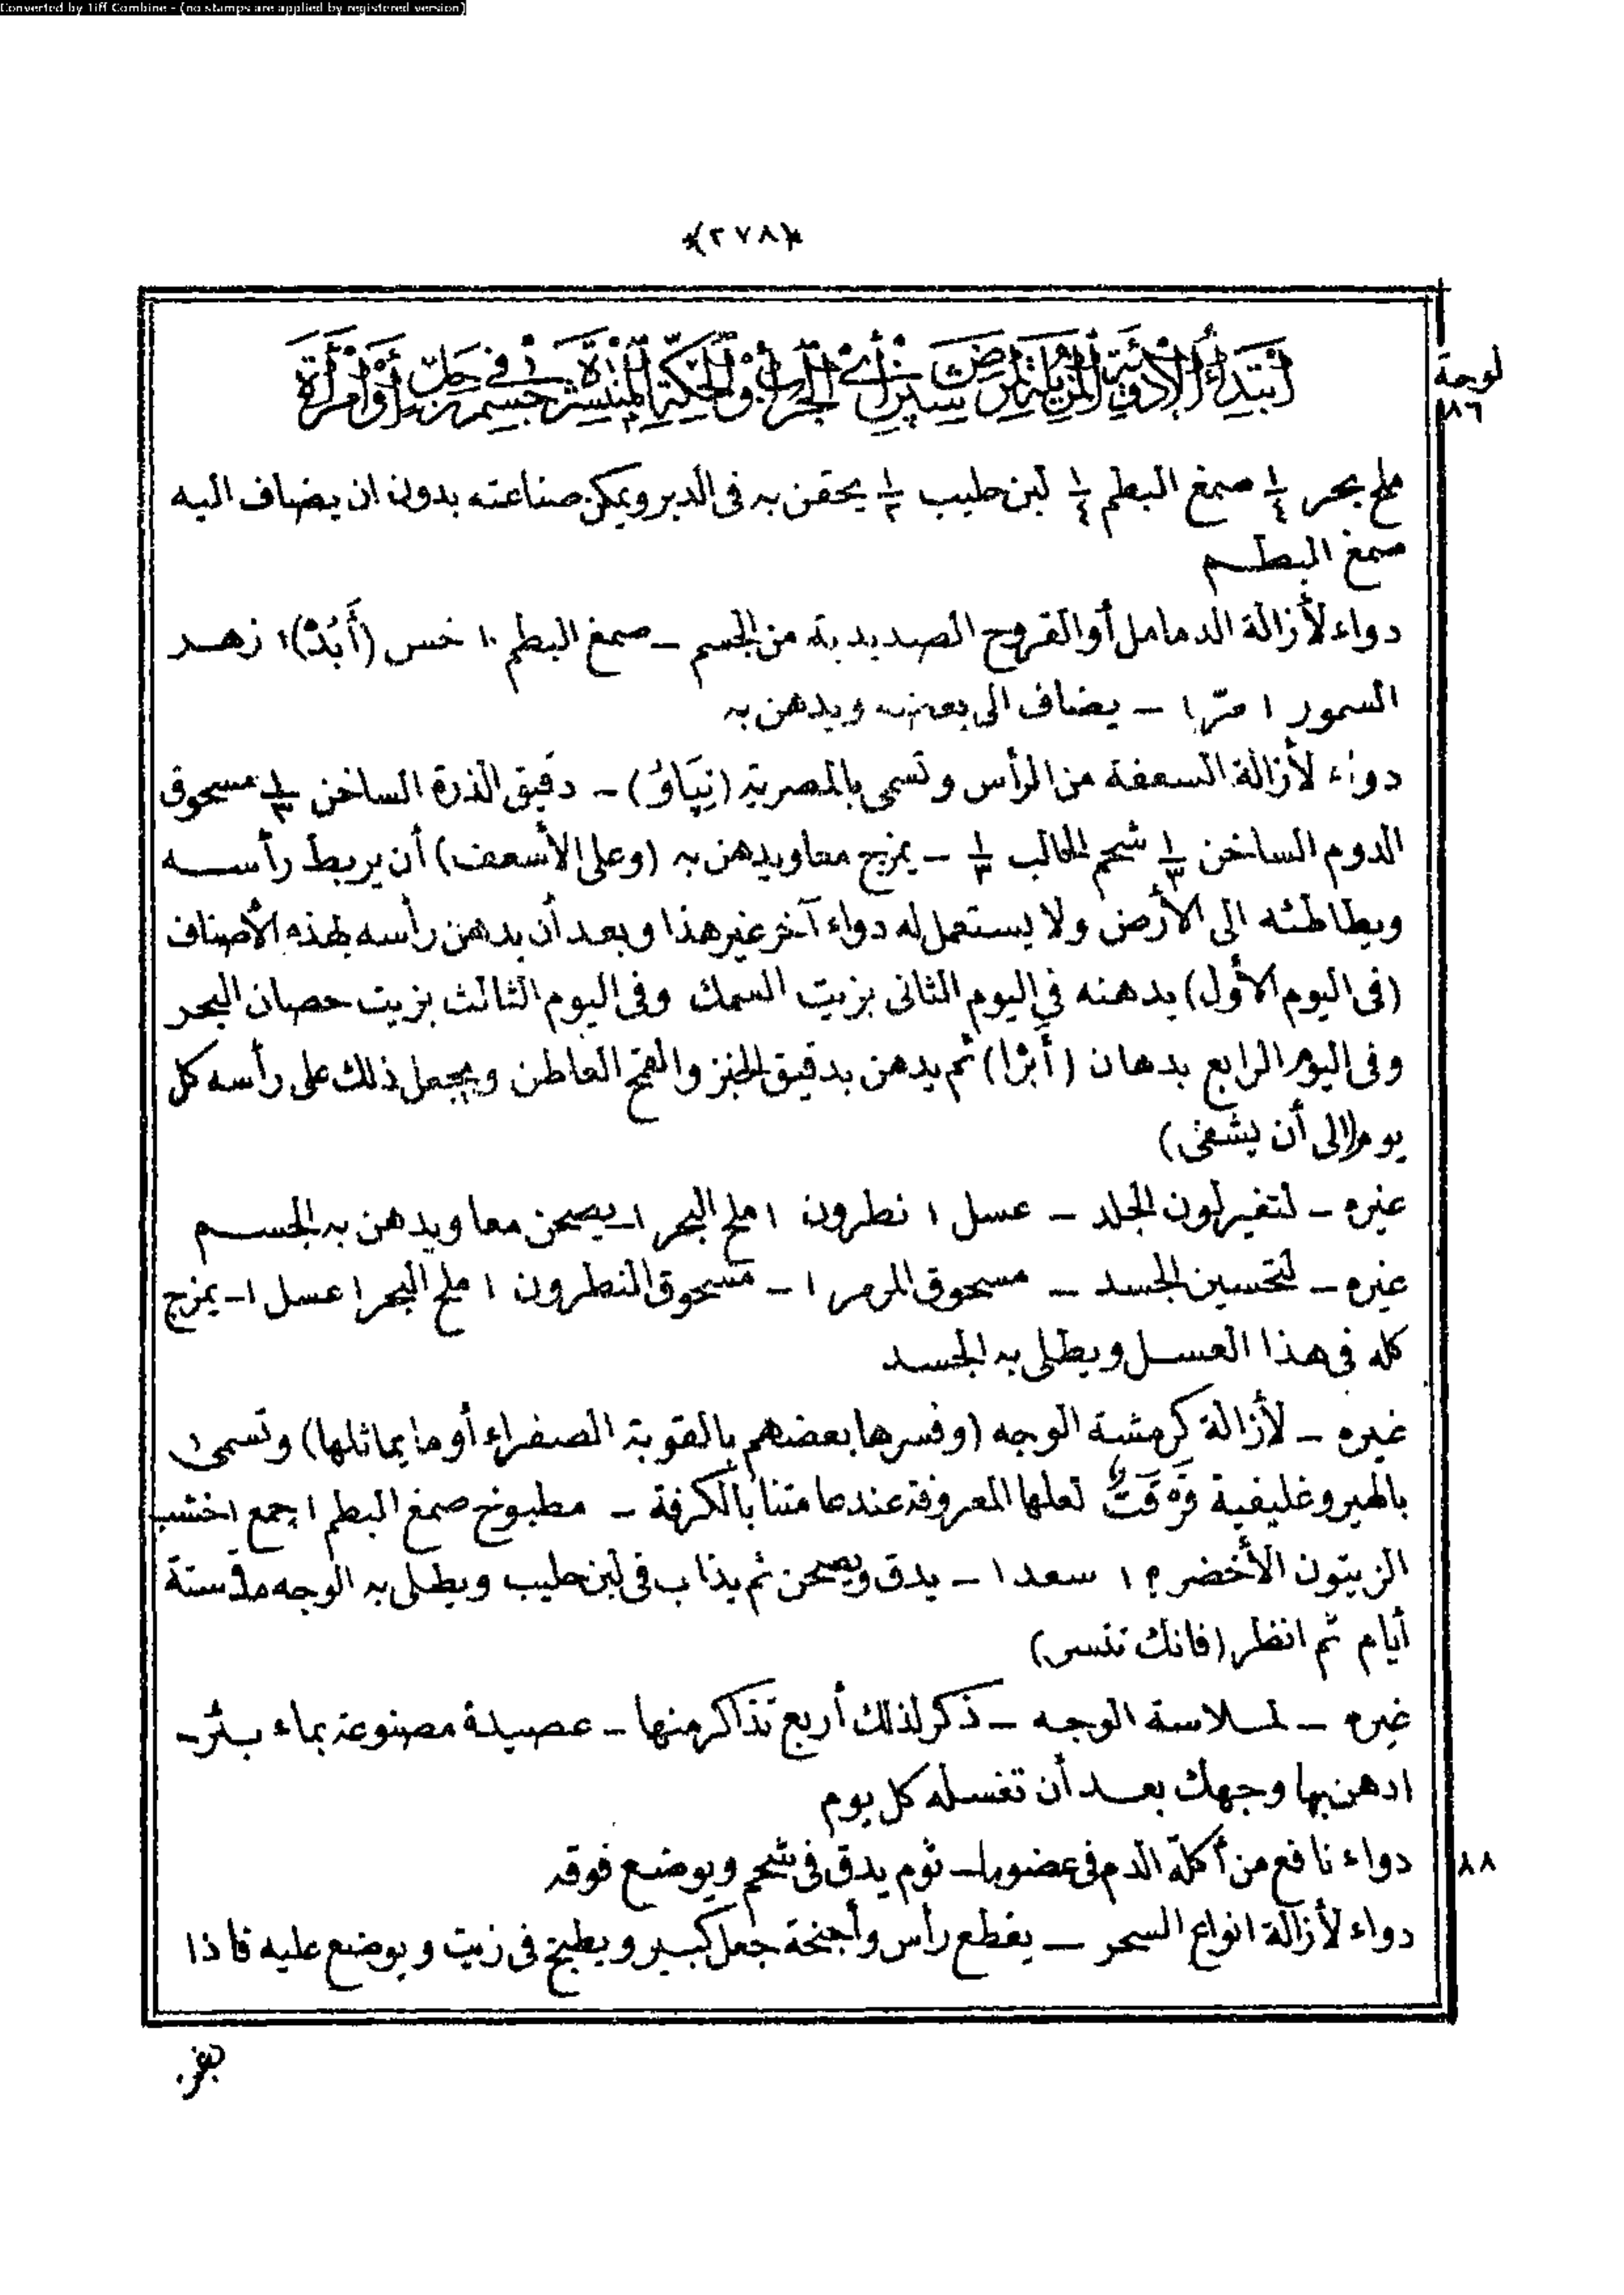 Converted by Tiff Combine - (no stamps are applied by registered version)
(٢٧٨)
لوحة
٨٦
ابتداء الأدوية المزيلة لمرض سبن أي الجرب أو الحكة المنتشرة في جسم رجل أو امرأة
ملح بحر ¼ صمغ البطم ¼ لبن حليب ½ يحقن به فى الدبر ويمكن صناعته بدون ان يضاف اليه
صمغ البطم
دواء لأزالة الدمامل أو القروح الصديدية من الجسم - صمغ البطم ١٠ خس (أَبُدُ) ١ زهر
السمور ١ مرّ ١ - يضاف الى بعضه ويدهن به
دواء لأزالة السعفة من الرأس وتسمى بالمصرية (نِپَاوُ) - دقيق الذرة الساخن ⅓ مسحوق
الدوم الساخن ⅓ شحم الحالب ⅓ - يمزج معا ويدهن به (وعلى الأسعف) أن يربط رأسه
ويطاطئه الى الأرض ولا يستعمل له دواء آخر غير هذا وبعد أن يدهن رأسه بهذه الأصناف
(فى اليوم الأول) يدهنه فى اليوم الثانى بزيت السمك وفى اليوم الثالث بزيت حصان البحر
وفى اليوم الرابع بدهان (أَبْرَا) ثم يدهن بدقيق الخبز والقمح العاطن ويجعل ذلك على رأسه كل
يوم (الى أن يشفى)
غيره - لتغير لون الجلد - عسل ١ نطرون ١ ملح البحر ١ - يصحن معا ويدهن به الجسم
غيره - لتحسين الجسد - مسحوق المرمر ١ - مسحوق النطرون ١ ملح البحر ١ عسل ١ - يمزج
كله فى هذا العسل ويطلى به الجسد
غيره - لأزالة كرمشة الوجه (وفسرها بعضهم بالقوبة الصفراء أو ما يماثلها) وتسمى
بالهيروغليفية لعلها المعروفة عند عامتنا بالكرفة - مطبوخ صمغ البطم ١ جمع ١ خشب
الزيتون الأخضر ؟ ١ سعد ١ - يدق ويصحن ثم يذاب فى لبن حليب ويطلى به الوجه مدة ستة
أيام ثم انظر (فانك تنسر)
غيره - لملاسة الوجه - ذكر لذلك أربع تذاكر منها - عصيدة مصنوعة بماء بئر -
ادهن بها وجهك بعد أن تغسله كل يوم
٨٨
دواء نافع من أكلة الدم فى عضو ما - ثوم يدق فى شحم ويوضع فوقه
دواء لأزالة انواع السحر - يقطع رأس وأجنحة جعل كبير ويطبخ فى زيت ويوضع عليه فاذا